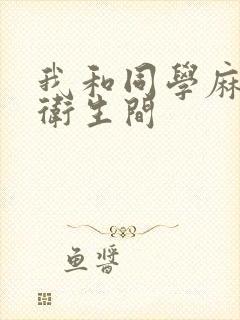 我和同學麻
衛生間
魚醬